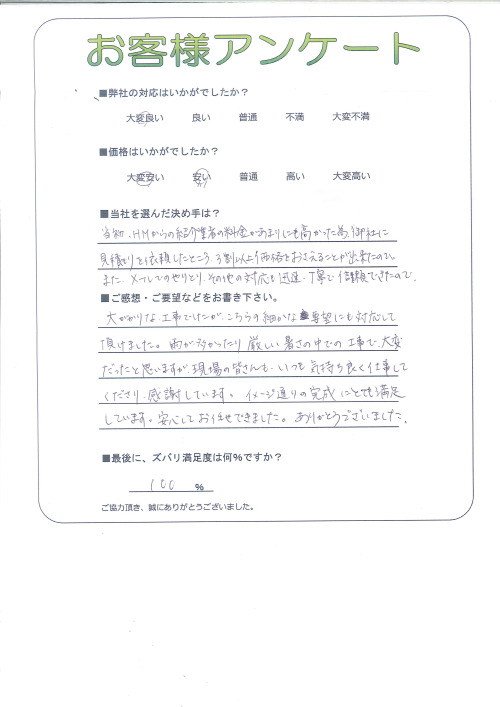 お客様アンケート
■弊社の対応はいかがでしたか？
大変良い 良い 普通 不満 大変不満
■価格はいかがでしたか？
大変安い 安い 普通 高い 大変高い
■当社を選んだ決め手は？
当初、HMからの紹介業者の料金があまりにも高かった為、御社に
見積りを依頼したところ、3割以上価格をおさえることが出来たので。
また、メールでのやりとり、その他の対応も迅速・丁寧で信頼できたので。
■ご感想・ご要望などをお書き下さい。
大がかりな工事でしたが、こちらの細かな要望にも対応して
頂けました。雨が多かったり厳しい暑さの中での工事で、大変
だったと思いますが、現場の皆さんも、いつも気持ち良く仕事して
くださり、感謝しています。イメージ通りの完成にとても満足
しています。安心してお任せできました。ありがとうございました。
■最後に、ズバリ満足度は何％ですか？
100 ％
ご協力頂き、誠にありがとうございました。